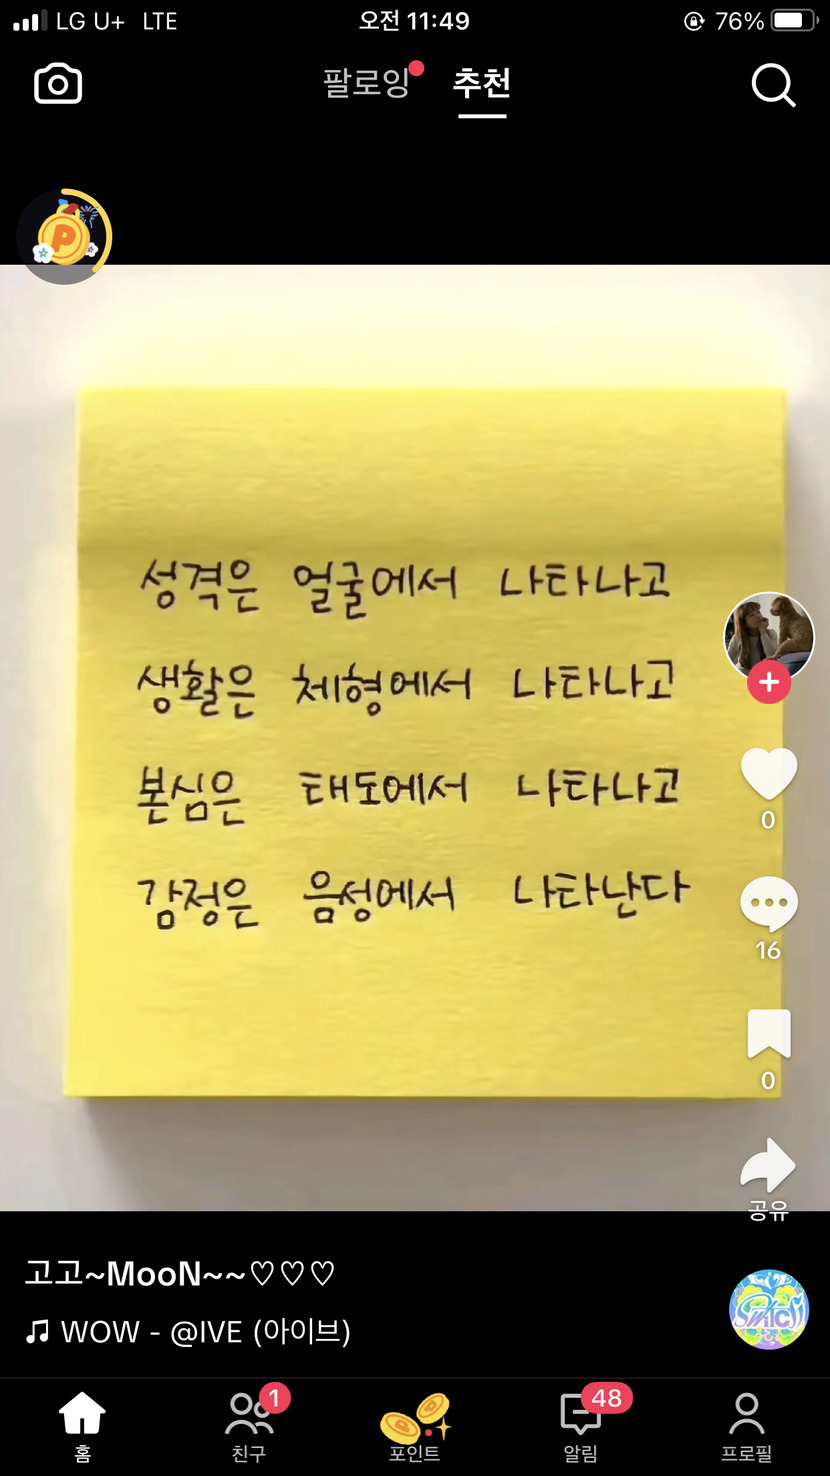 LG U+ LTE 오전 11:49 76%
팔로잉 추천
P
성격은 얼굴에서 나타나고
생활은 체형에서 나타나고
본심은 태도에서 나타나고
감정은 음성에서 나타난다
0
16
0
공유
고고~MooN~~♡♡♡
WOW - @IVE (아이브)
1
48
홈 친구 포인트 알림 프로필